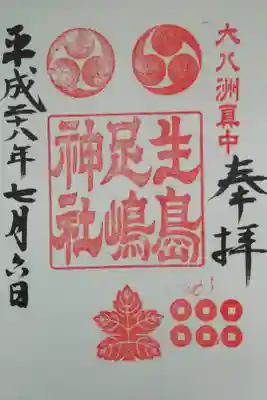 大八洲眞中
奉拝
生島
足嶋
神社
平成二十八年七月六日